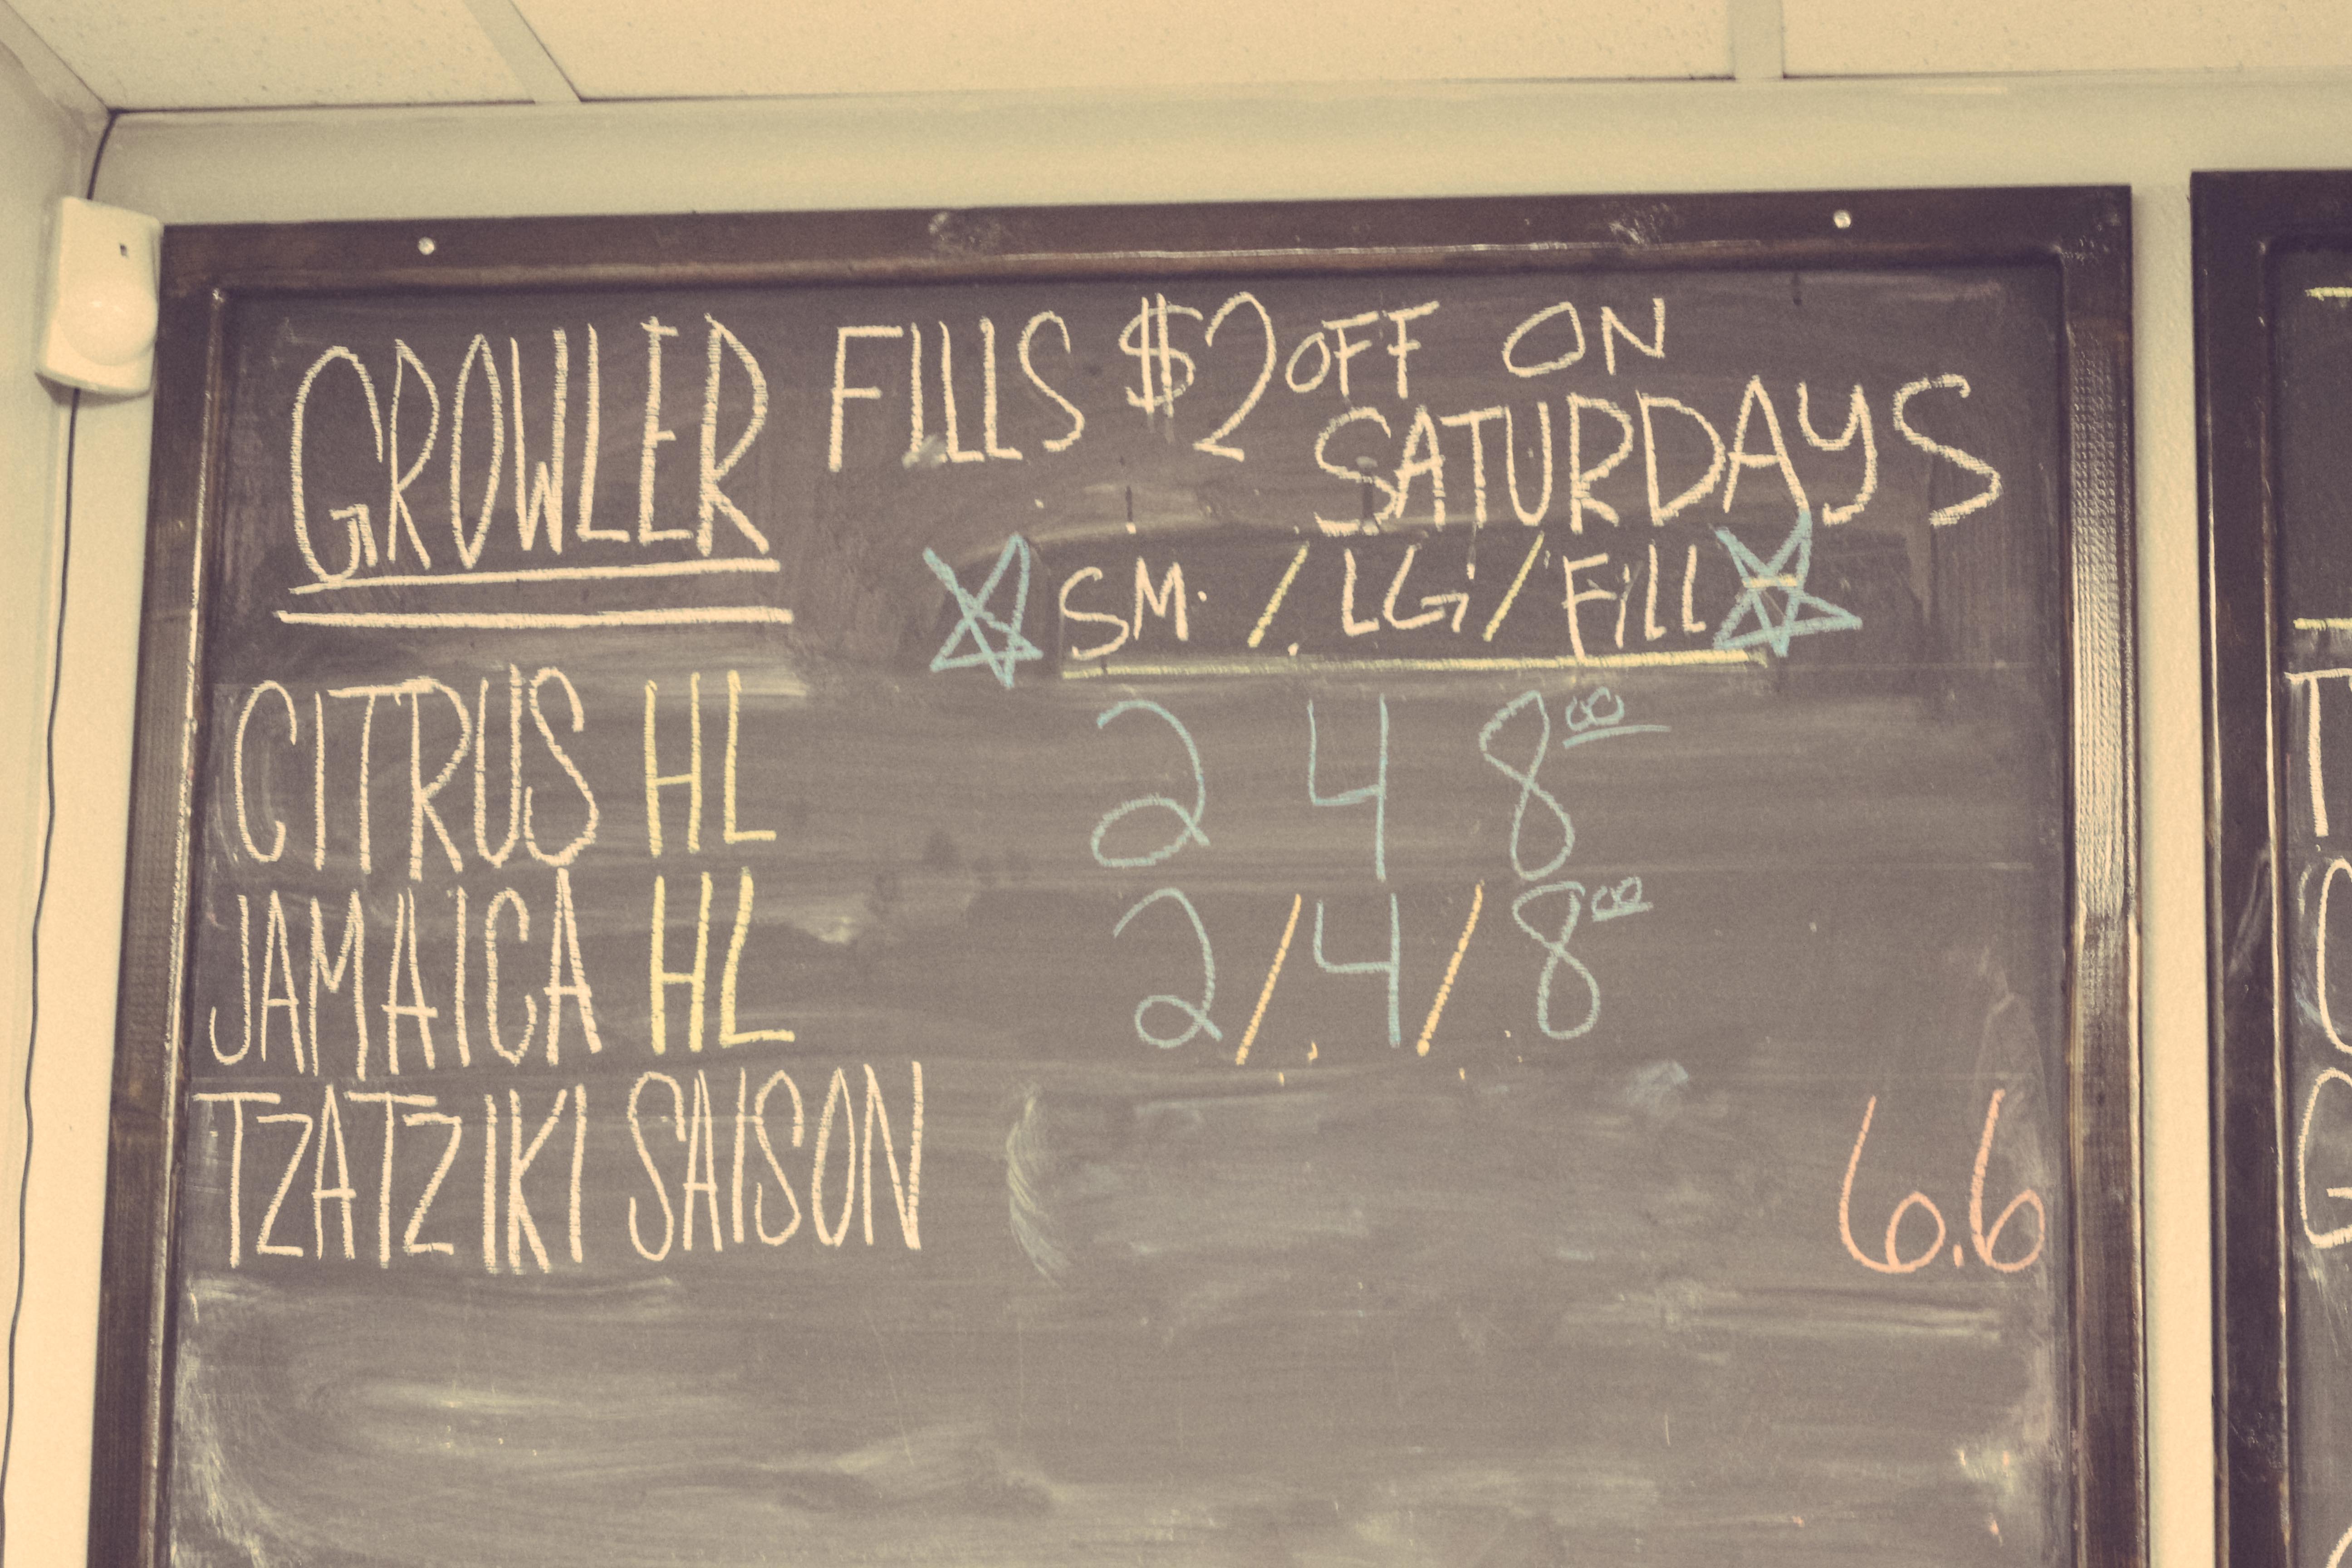 GROWLER FILLS $2 OFF ON
SATURDAYS
SM. / LG / FILL
CITRUS HL 2 4 8⁰⁰
JAMAICA HL 2/4/8⁰⁰
TZATZIKI SAISON 6.6